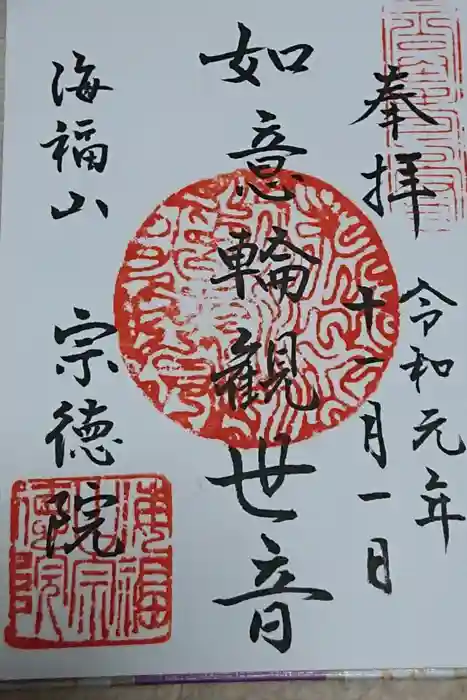 奉拝
令和元年
十一月一日
如意輪観世音
海福山 宗徳院
海福
宗
徳院